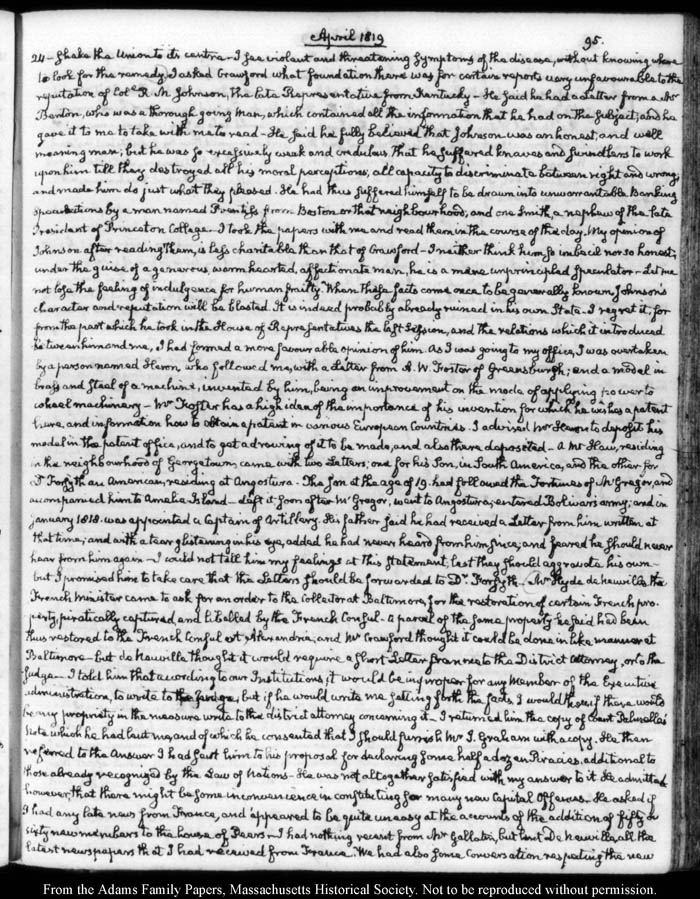 April 1819
95.
24 - shake the Union to its centre - I see violent and threatening symptoms of the disease, without knowing where
to look for the remedy. I asked Crawford what foundation there was for certain reports very unfavourable to the
reputation of Coll. R. M. Johnson, the late Representative from Kentucky - He said he had a Letter from a Mr
Benton, who was a thorough going man, which contained all the information that he had on the subject; and he
gave it to me to take with me to read - He said he fully believed that Johnson was an honest, and well
meaning man; but he was so excessively weak and credulous that he suffered knaves and swindlers to work
upon him till they destroyed all his moral perceptions, all capacity to discriminate between right and wrong,
and made him do just what they pleased. He had thus suffered himself to be drawn into unwarrantable Banking
speculations by a man named Prentiss from Boston or that neighbourhood, and one Smith, a nephew of the late
President of Princeton College - I took the papers with me and read them in the course of the day. My opinion of
Johnson after reading them, is less charitable than that of Crawford - I neither think him so imbecil nor so honest;
under the guise of a generous, warm hearted, affectionate man, he is a mere unprincipled speculator - Let me
not lose the feeling of indulgence for human frailty. When these facts come once to be generally known Johnson's
character and reputation will be blasted. It is indeed probably already ruined in his own State - I regret it; for
from the part which he took in the House of Representatives the last Session, and the relations which it introduced
between him and me, I had formed a more favourable opinion of him. As I was going to my office, I was overtaken
by a person named Heron, who followed me, with a Letter from A. W. Foster of Greensburgh; and a model in
brass and steel of a machine, invented by him, being an improvement on the mode of applying power to
wheel machinery - Mr Foster has a high idea of the importance of his invention for which he wishes a patent
here, and information how to obtain a patent in various European Countries. I advised Mr Heron to deposit his
model in the patent office, and to get a drawing of it to be made, and also there deposited - A Mr Haw, residing
in the neighbourhood of Georgetown, came with two Letters; one for his Son, in South America, and the other for
Dr Forsyth an American, residing at Angostura - The son at the age of 19. had followed the Fortunes of McGregor, and
accompanied him to Amelia Island - left it soon after McGregor, went to Angostura; entered Bolivar's army; and in
January 1818. was appointed a Captain of Artillery. His father said he had received a Letter from him written at
that time; and with a tear glistening in his eye, added he had never heard from him since, and feared he should never
hear from him again - I could not tell him my feelings at this statement, lest they should aggravate his own -
but I promised him to take care that the Letters should be forwarded to Dr Forsyth. Mr Hyde de Neuville the
French Minister came to ask for an order to the Collector at Baltimore, for the restoration of certain French pro-
perty, piratically captured, and libelled by the French Consul - A parcel of the same property he said had been
thus restored to the French Consul at Alexandria; and Mr Crawford thought it could be done in like manner at
Baltimore - but de Neuville thought it would require a short Letter from me to the District Attorney, or to the
Judge - I told him that according to our Institutions, it would be improper for any Member of the Executive
administration, to write to the judge, but if he would write me setting forth the facts, I would then if there would
be any propriety in the measure write to the district attorney concerning it - I returned him the copy of Count
Note which he had lent me, and of which he consented that I should furnish Mr J. Graham with a copy. He then
referred to the Answer I had sent him to his proposal for declaring some half a dozen Piracies, additional to
those already recognized by the Law of Nations - He was not altogether satisfied with my answer to it. He admitted
however, that there might be some inconvenience in constituting so many new Capital Offences. He asked if
I had any late news from France, and appeared to be quite uneasy at the accounts of the addition of fifty or
sixty new members to the house of Peers - I had nothing recent from Mr Gallatin, but lent De Neuville, all the
latest newspapers that I had received from France. We had also some conversation respecting the new
From the Adams Family Papers, Massachusetts Historical Society. Not to be reproduced without permission.